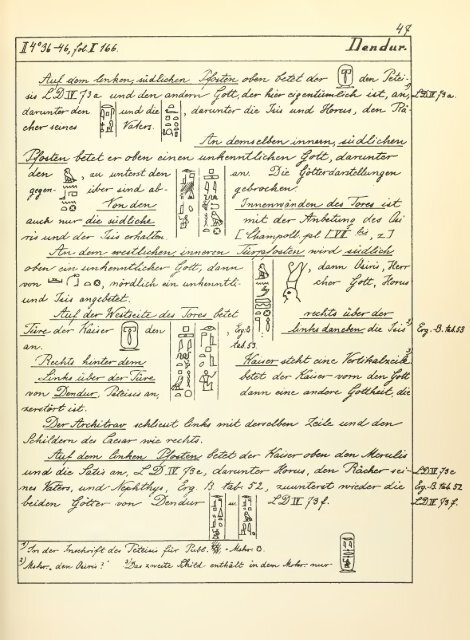 47
II 4° 36-46, fol. I 166. Dendur.
Auf dem linken, südlichen Pfosten oben betet der den Peteï-
sis L.D. IV 73 a und den andern Gott, der hier eigentümlich ist, an, L.D. IV. 73 a.
darunter den und die , darunter die Isis und Horus, den Rä-
cher seines Vaters.
An demselben innern, südlichen
Pfosten betet er oben einen unkenntlichen Gott, darunter
den , zu unterst den an. Die Götterdarstellungen
gegen- über sind ab- gebrochen.
Von den Innenwänden des Tores ist
auch nur die südliche mit der Anbetung des Osi-
ris und der Isis erhalten. [Champoll. pl. LVI bis, 2]
An dem westlichen, inneren Türpfosten wird südlich
oben ein unkenntlicher Gott, dann , dann Osiris, Herr
von , nördlich ein unkenntli- cher Gott, Horus
und Isis angebetet.
Auf der Westseite des Tores betet rechts über der
Türe der Kaiser den , Erg. B. links daneben die Isis Erg. B. tab. 53
an. tab. 53.
Rechts hinter dem Kaiser steht eine Vertikalzeile.
Links über der Türe betet der Kaiser vorn den Gott
von Dendur, Peteïsis an, dann eine andere Gottheit, die
zerstört ist.
Der Architrav schliesst links mit derselben Zeile und den
Schildern des Caesar wie rechts.
Auf dem linken Pfosten betet der Kaiser oben den Merulis
und die Satis an, L.D. IV 73 c, darunter Horus, den Rächer sei- L.D. IV. 73 c
nes Vaters, und Nephthys, Erg. B. tab. 52, zuunterst wieder die Erg. B. tab. 52
beiden Götter von Dendur u. L.D. IV 73 f. L.D. IV. 73 f.
1) In der Inschrift des Peteïsis für Publ.
2) Mskr. „den Osiris?" 3) Das zweite Schild enthält in dem Mskr. nur